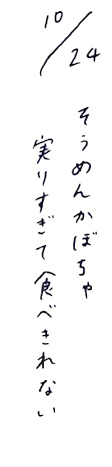 10/24
そうめんかぼちゃ
実りすぎて食べきれない